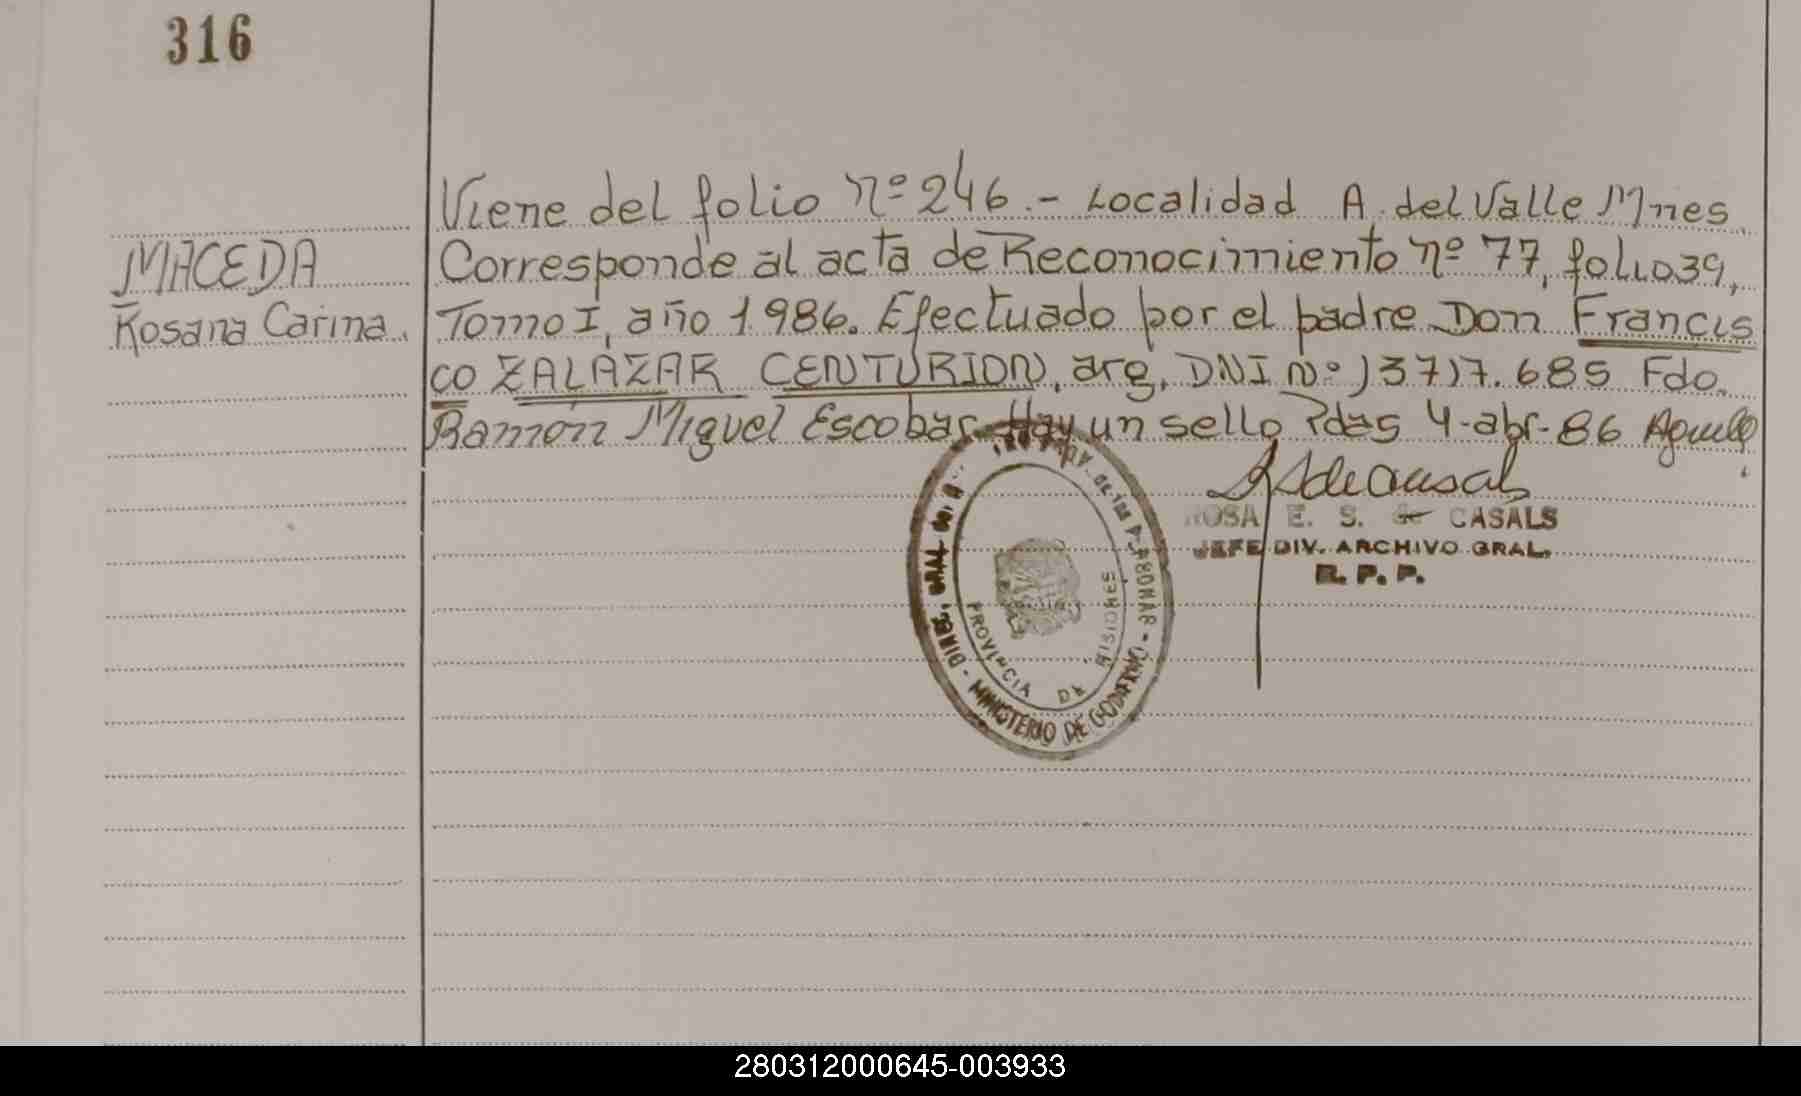 316
Viene del folio nº 246.- Localidad A. del Valle Mnes.
MACEDA
Corresponde al acta de Reconocimiento nº 77, folio 39,
Rosana Carina.
Tomo I, año 1986. Efectuado por el padre Don Francis
co ZALAZAR CENTURION, arg, DNI Nº 13717.685 Fdo.
Ramon Miguel Escobar. Hay un sello Pdas 4-abr-86
ROSA E. S. de CASALS
JEFE DIV. ARCHIVO GRAL.
R. P. P.
PROVINCIA DE MISIONES
MINISTERIO DE GOBIERNO
280312000645-003933